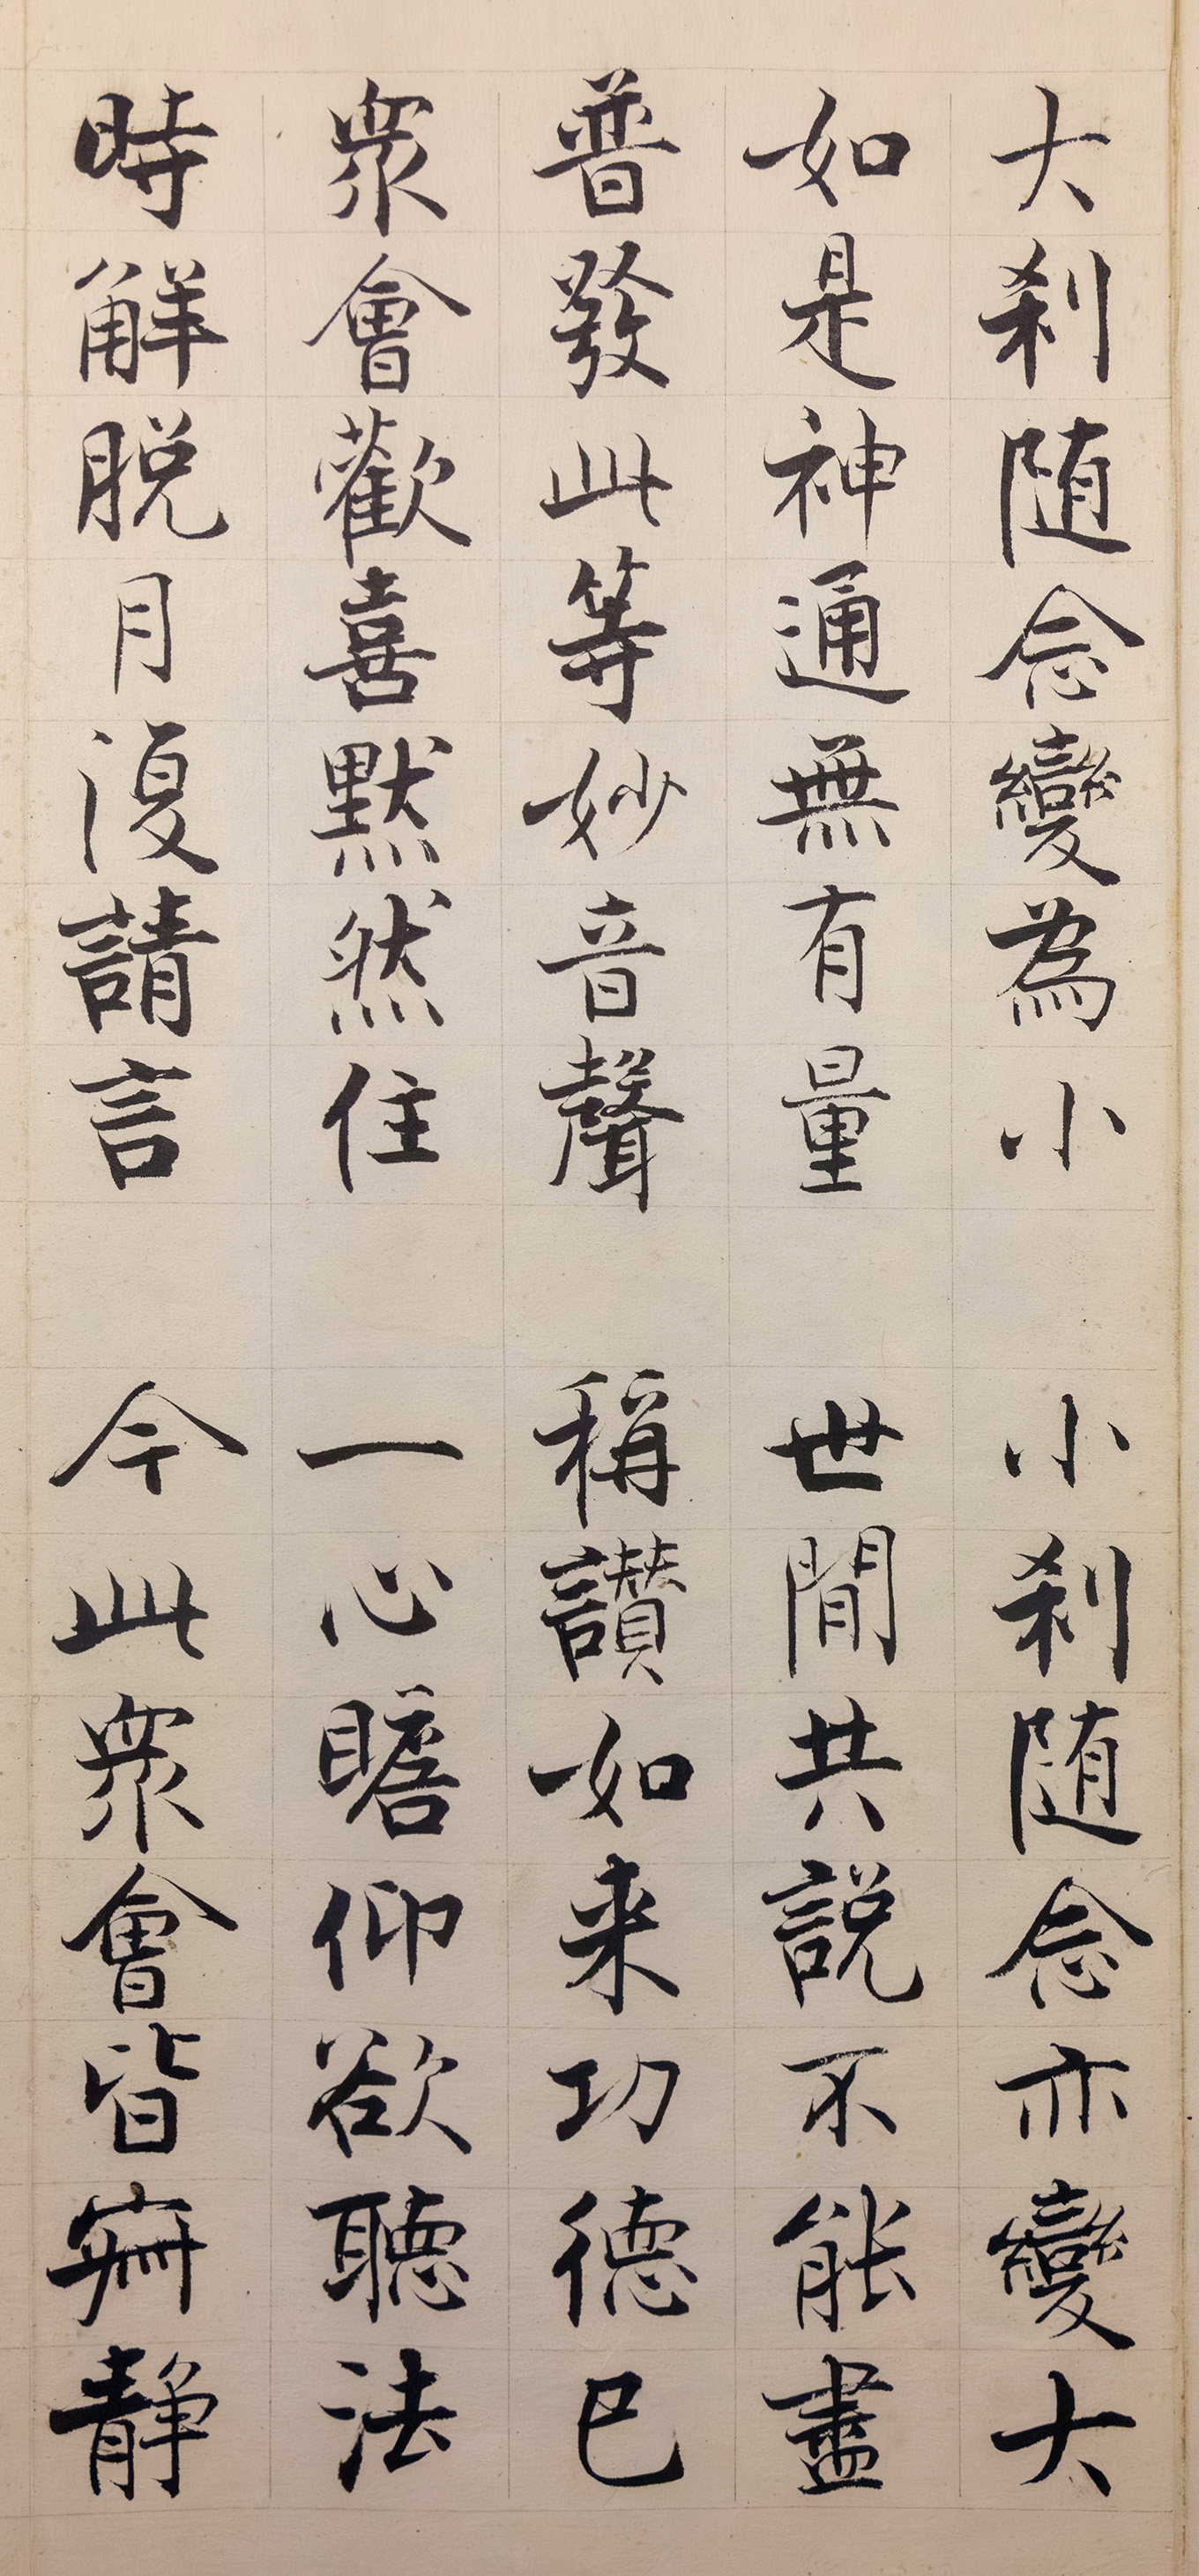 大刹随念變為小　小刹随念亦變大
如是神通無有量　世間共說不能盡
普發此等妙音聲　稱讚如来功德已
衆會歡喜默然住　一心瞻仰欲聽法
時解脱月復請言　今此衆會皆寂静